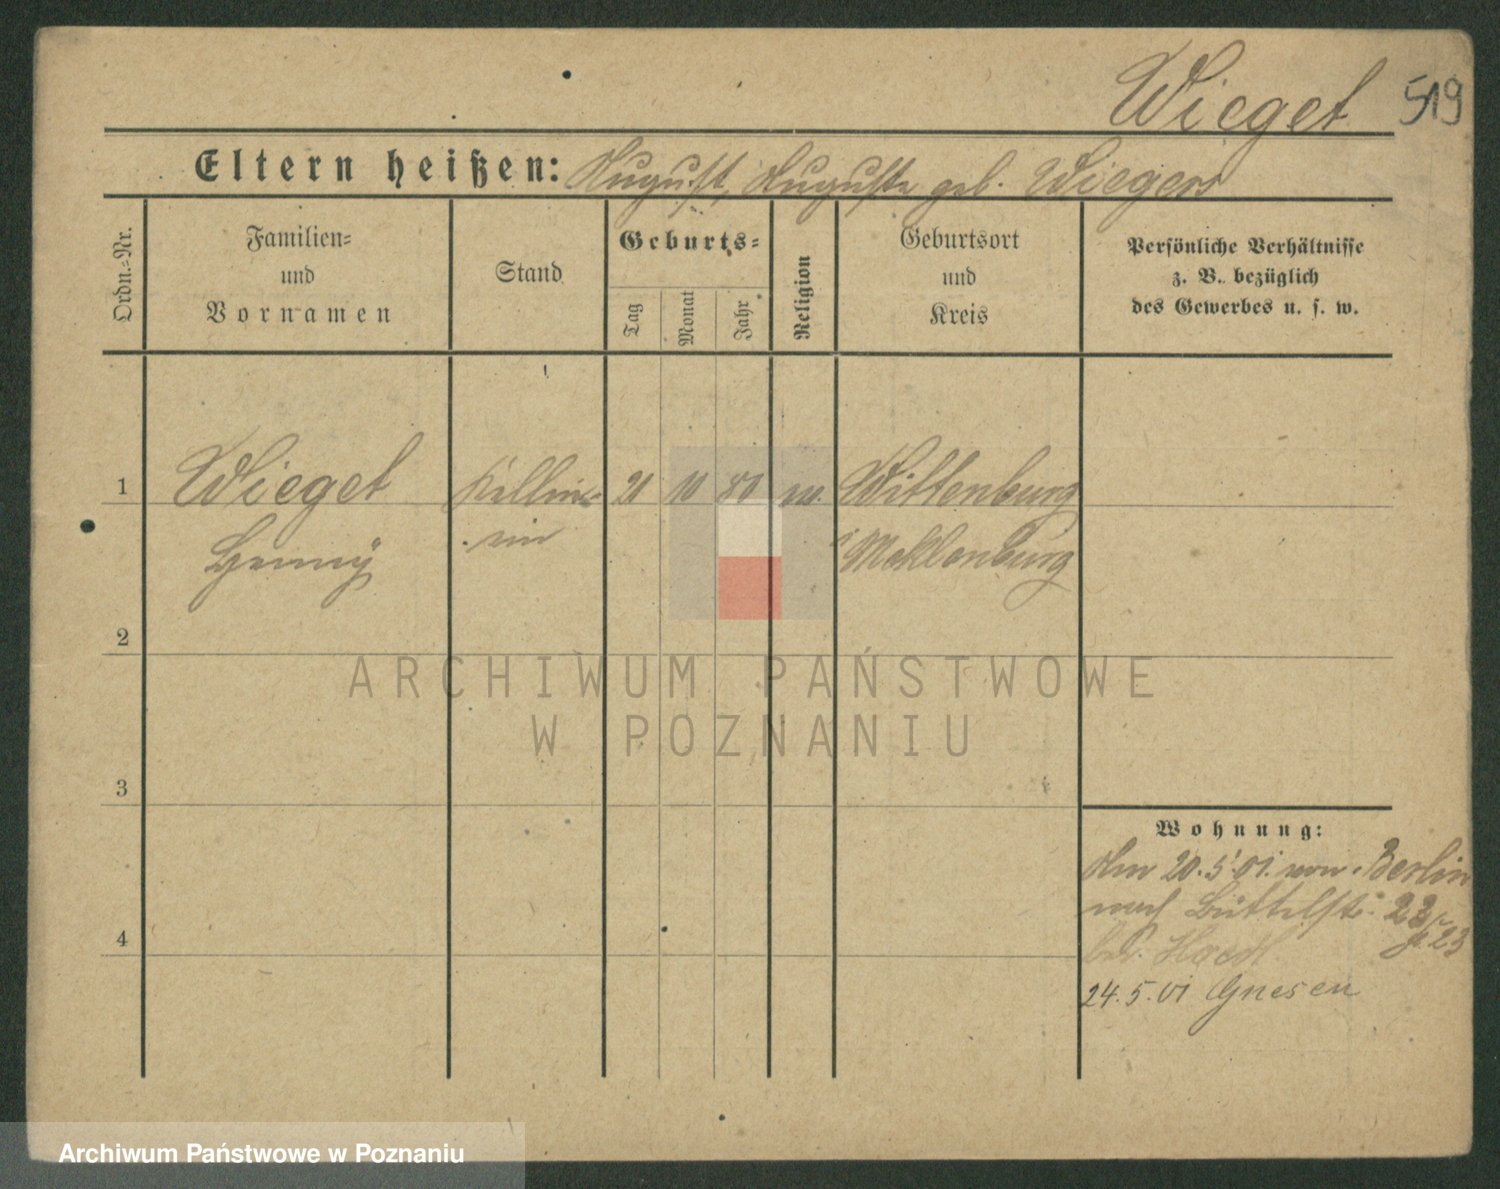 Wieget 519
Eltern heißen: August, Auguste geb. Wiegers
Ordn.-Nr.
Familien-
und
Vornamen
Stand
Geburts-
Tag
Monat
Jahr
Religion
Geburtsort
und
Kreis
Persönliche Verhältnisse
z. B. bezüglich
des Gewerbes u. s. w.
1 Wieget Kellne- 21 10 80 Wittenburg
Henny rin Meklenburg
2
3
4
Wohnung:
Am 20.5.01. von Berlin
nach Büttelstr. 23
bei
24.5.01 Gnesen
ARCHIWUM PAŃSTWOWE
W POZNANIU
Archiwum Państwowe w Poznaniu